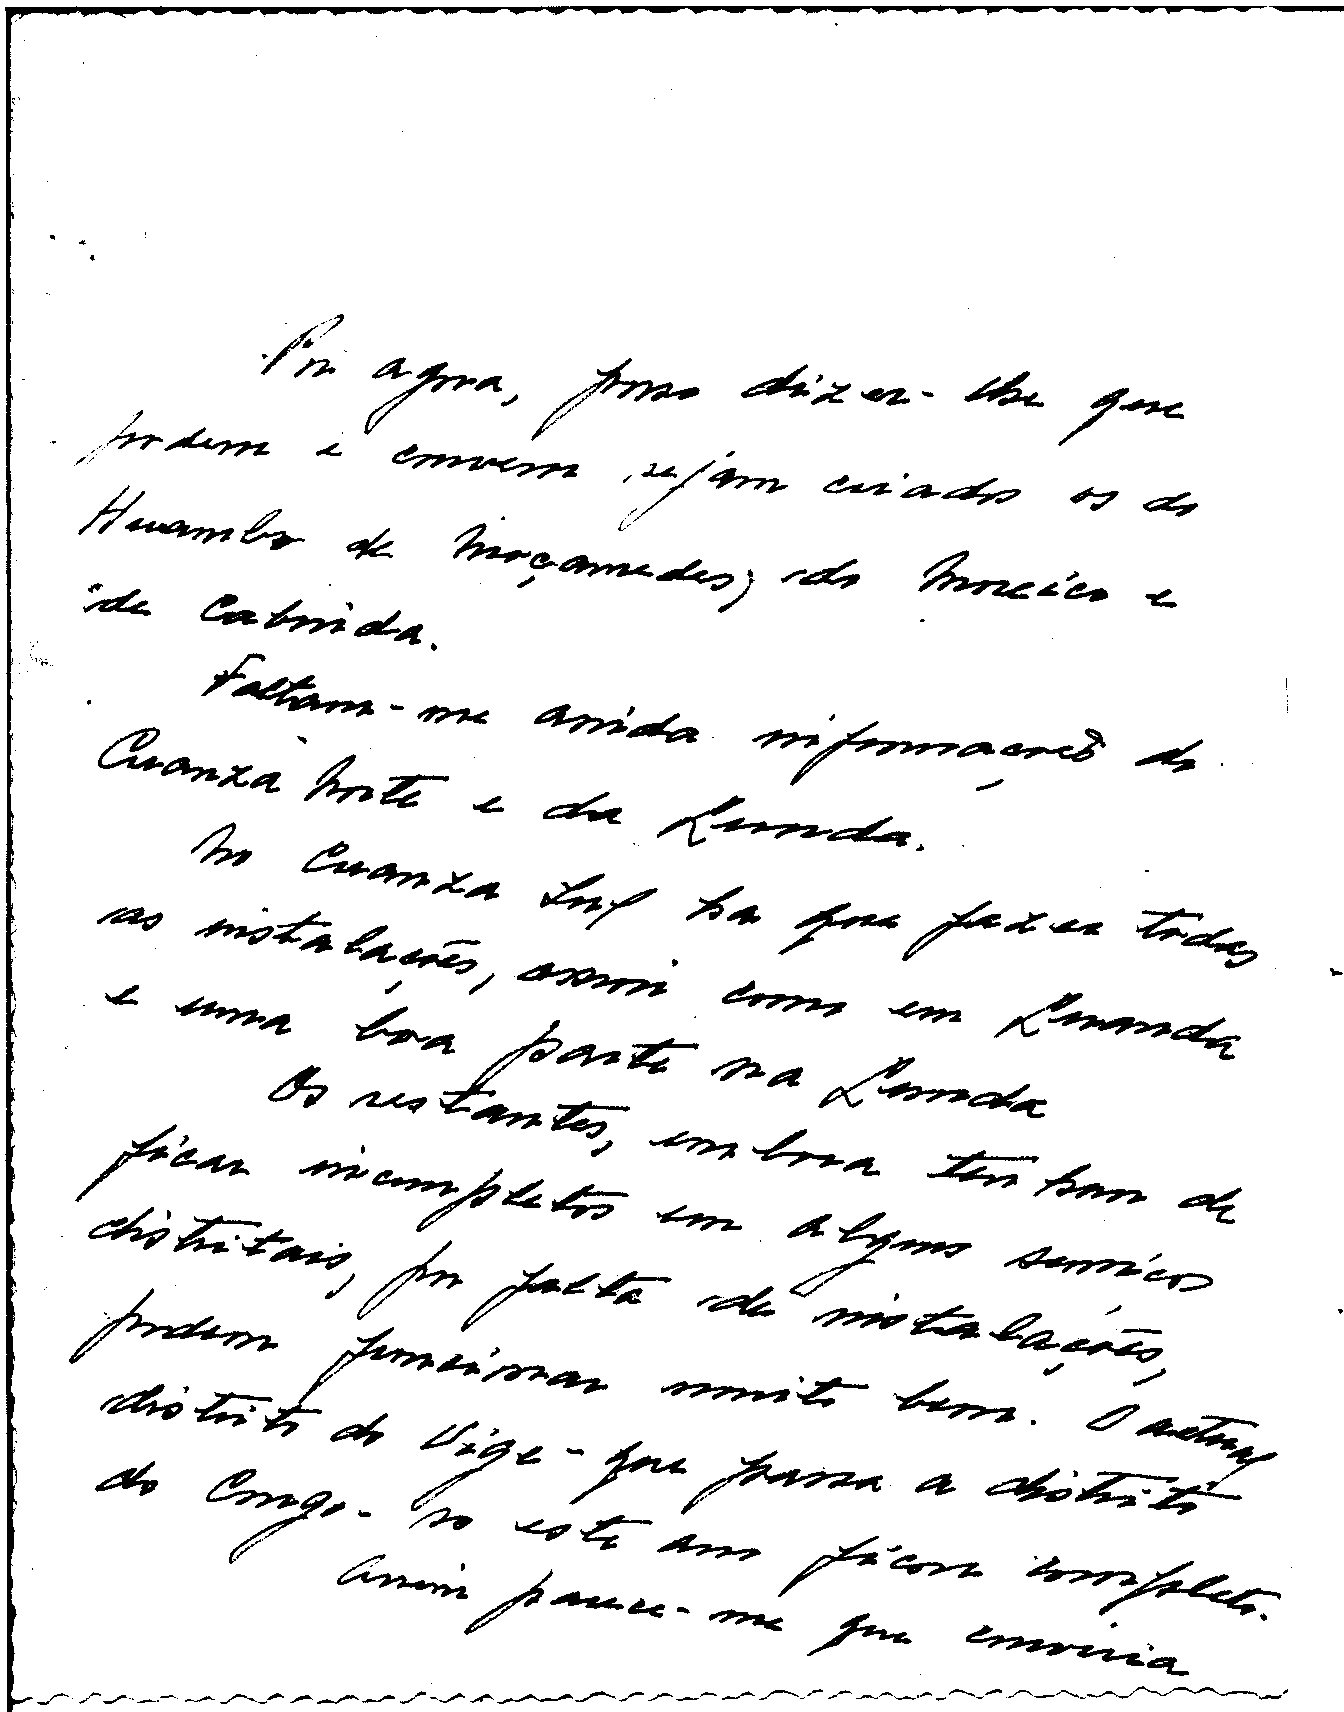 Por agora, posso dizer-lhe que
podem e convem sejam criados os do
Huambo de Moçamedes, do Moxico e
de Cabinda.
Faltam-me ainda informações do
Cuanza Norte e da Lunda.
No Cuanza Sul ha que fazer todas
as instalações, assim como em Luanda
e uma boa parte na Lunda
Os restantes, embora tenham de
ficar incompletos em alguns serviços
distritais, por falta de instalações,
podem funcionar muito bem. O actual
distrito do Uige - que passa a distrito
do Congo - so este ano ficou completo.
Assim parece-me que conviria